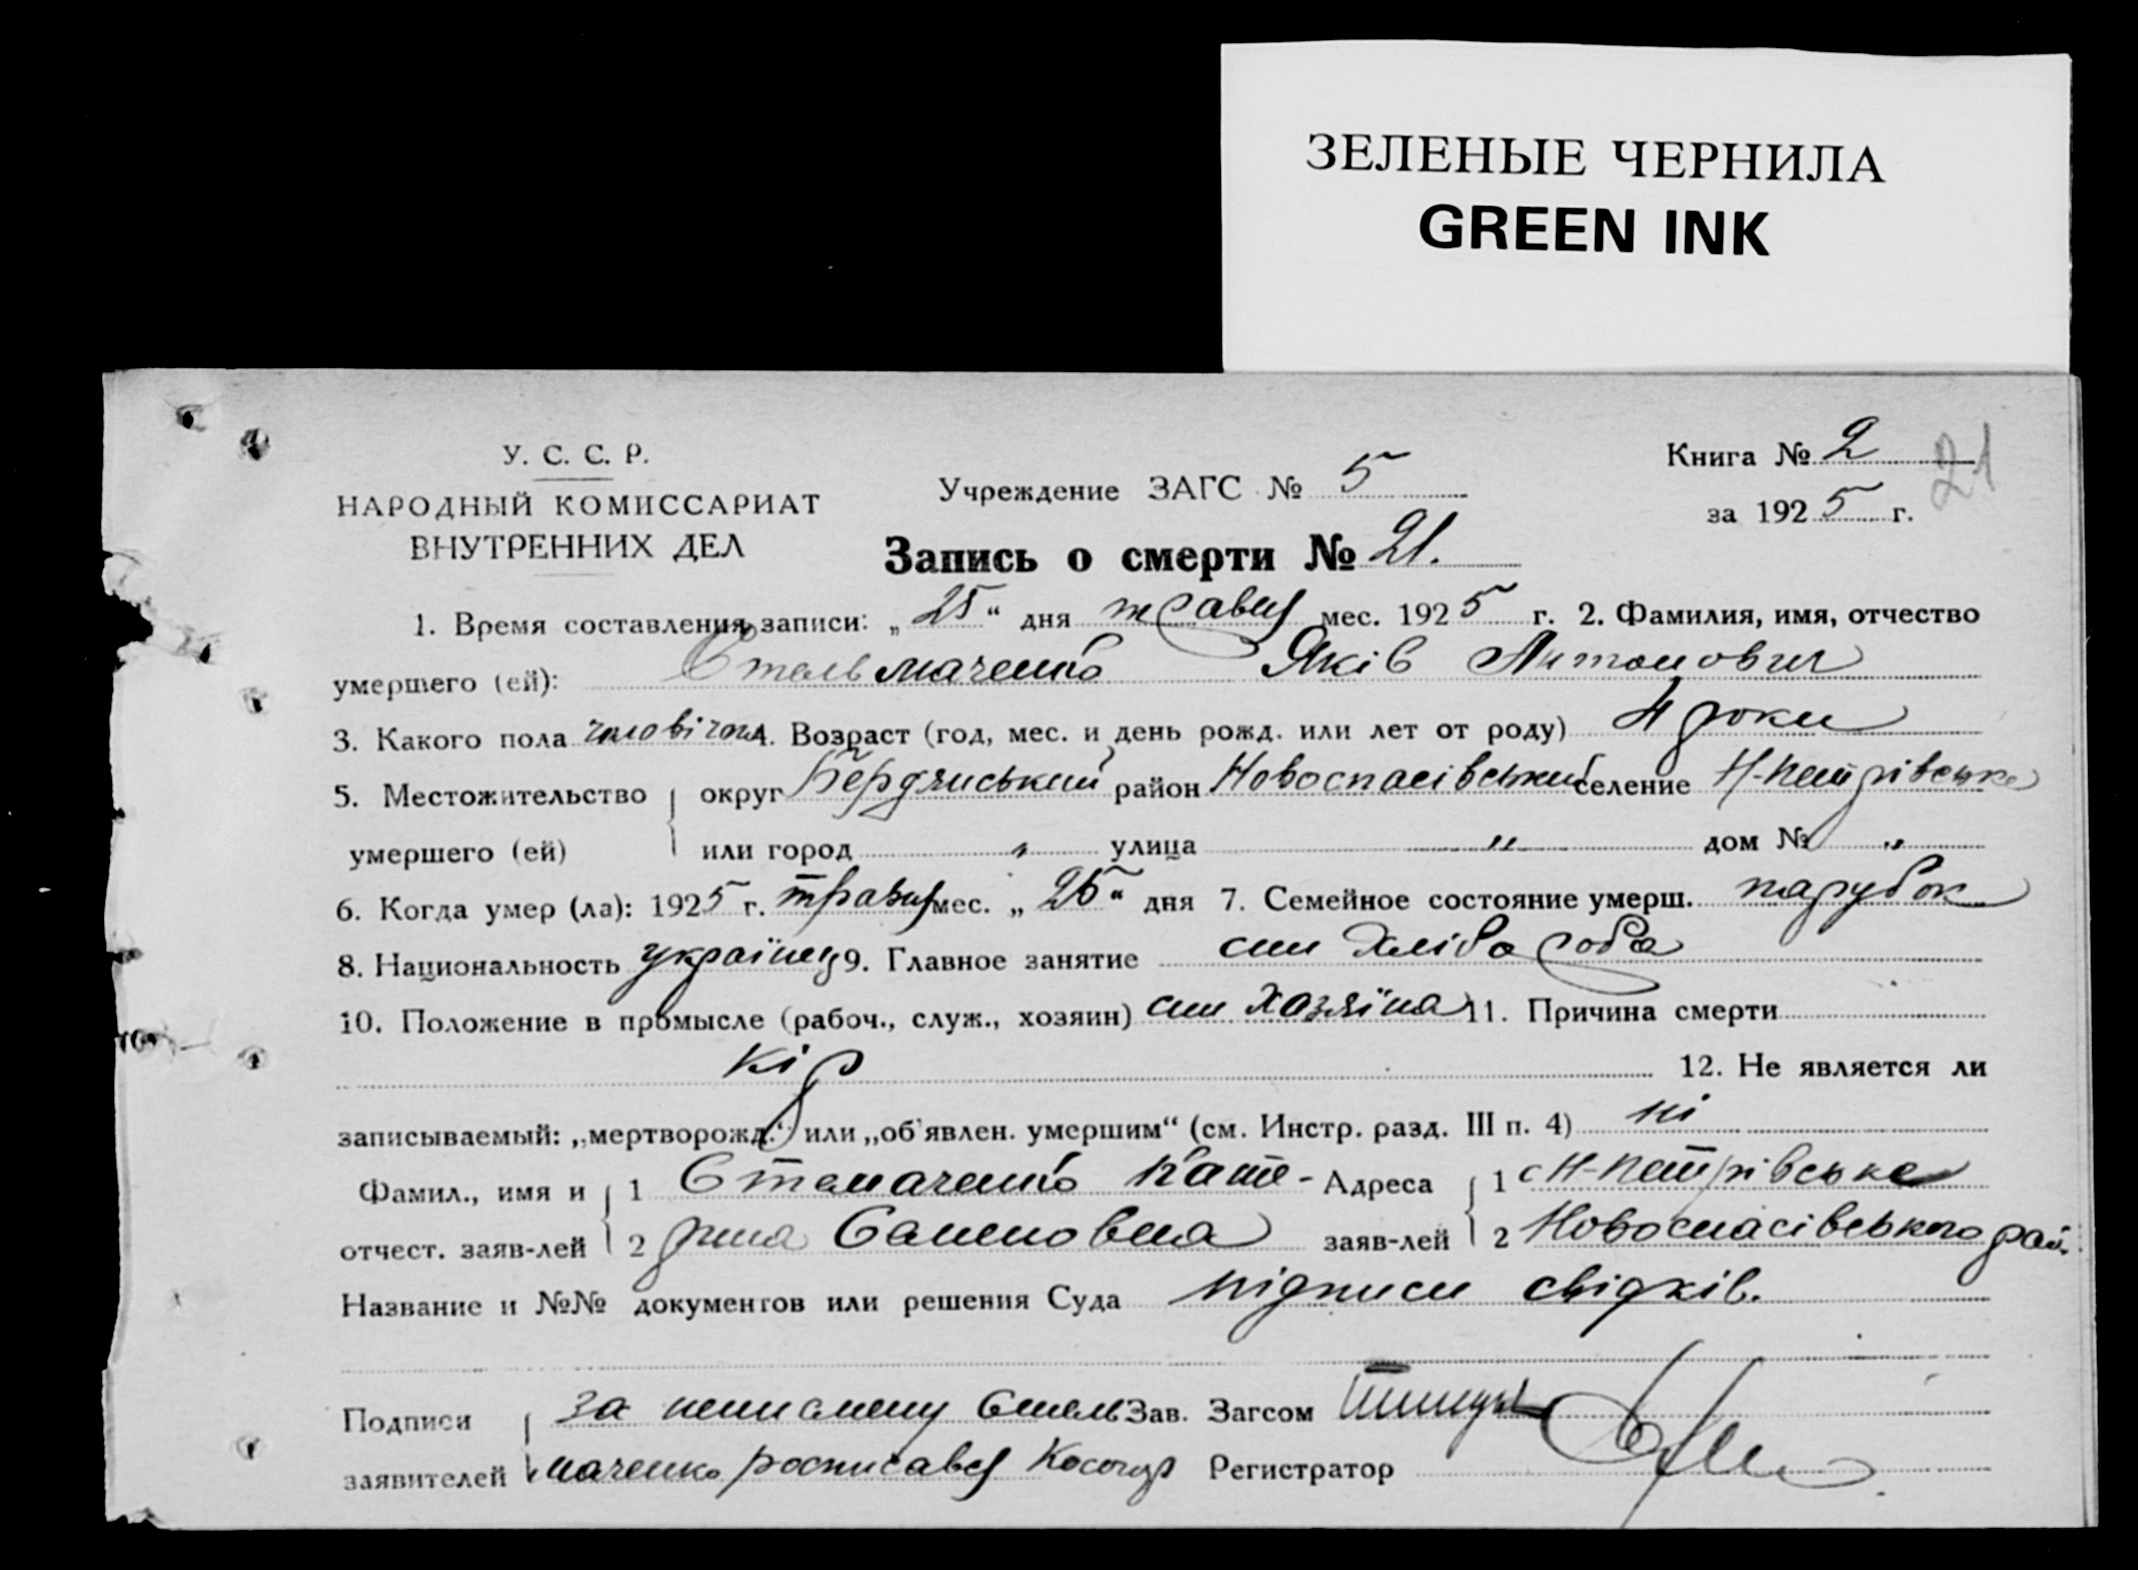 ЗЕЛЕНЫЕ ЧЕРНИЛА
GREEN INK
У. С. С. Р.
НАРОДНЫЙ КОМИССАРИАТ
ВНУТРЕННИХ ДЕЛ
Учреждение ЗАГС № 5
Книга № 2
21
за 1925 г.
Запись о смерти № 21.
1. Время составления записи: „25“ дня травня мес. 1925 г. 2. Фамилия, имя, отчество
умершего (ей): Стельмаченко Яків Антонович
3. Какого пола чоловічої 4. Возраст (год, мес. и день рожд. или лет от роду) 4 роки
5. Местожительство округ Бердянський район Новоспасівський селение Н-Петрівське
умершего (ей) или город " улица " дом № "
6. Когда умер (ла): 1925 г. травня мес. „25“ дня 7. Семейное состояние умерш. парубок
8. Национальность українец 9. Главное занятие син хлібороба
10. Положение в промысле (рабоч., служ., хозяин) син хозяїна 11. Причина смерти
кір 12. Не является ли
записываемый: „мертворожд.“ или „об'явлен. умершим“ (см. Инстр. разд. III п. 4) ні
Фамил., имя и 1 Стемаченко Кате- Адреса 1 с Н-Петрівське
отчест. заяв-лей 2 рина Семеновна заяв-лей 2 Новоспасівського рай.
Название и №№ документов или решения Суда підписи свідків.
Подписи за неписмену Стель Зав. Загсом
заявителей маченко росписався Регистратор